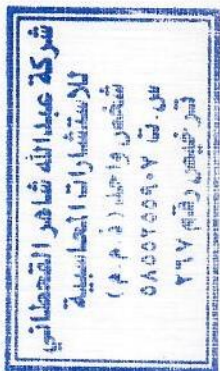 شركة عبدالله شاهر القحطاني
للاستشارات المحاسبية
شخص واحد (ذ.م.م)
س.ت ٥٨٥٥٢٥٥٩٠٧
ترخيص رقم ٧٩٧